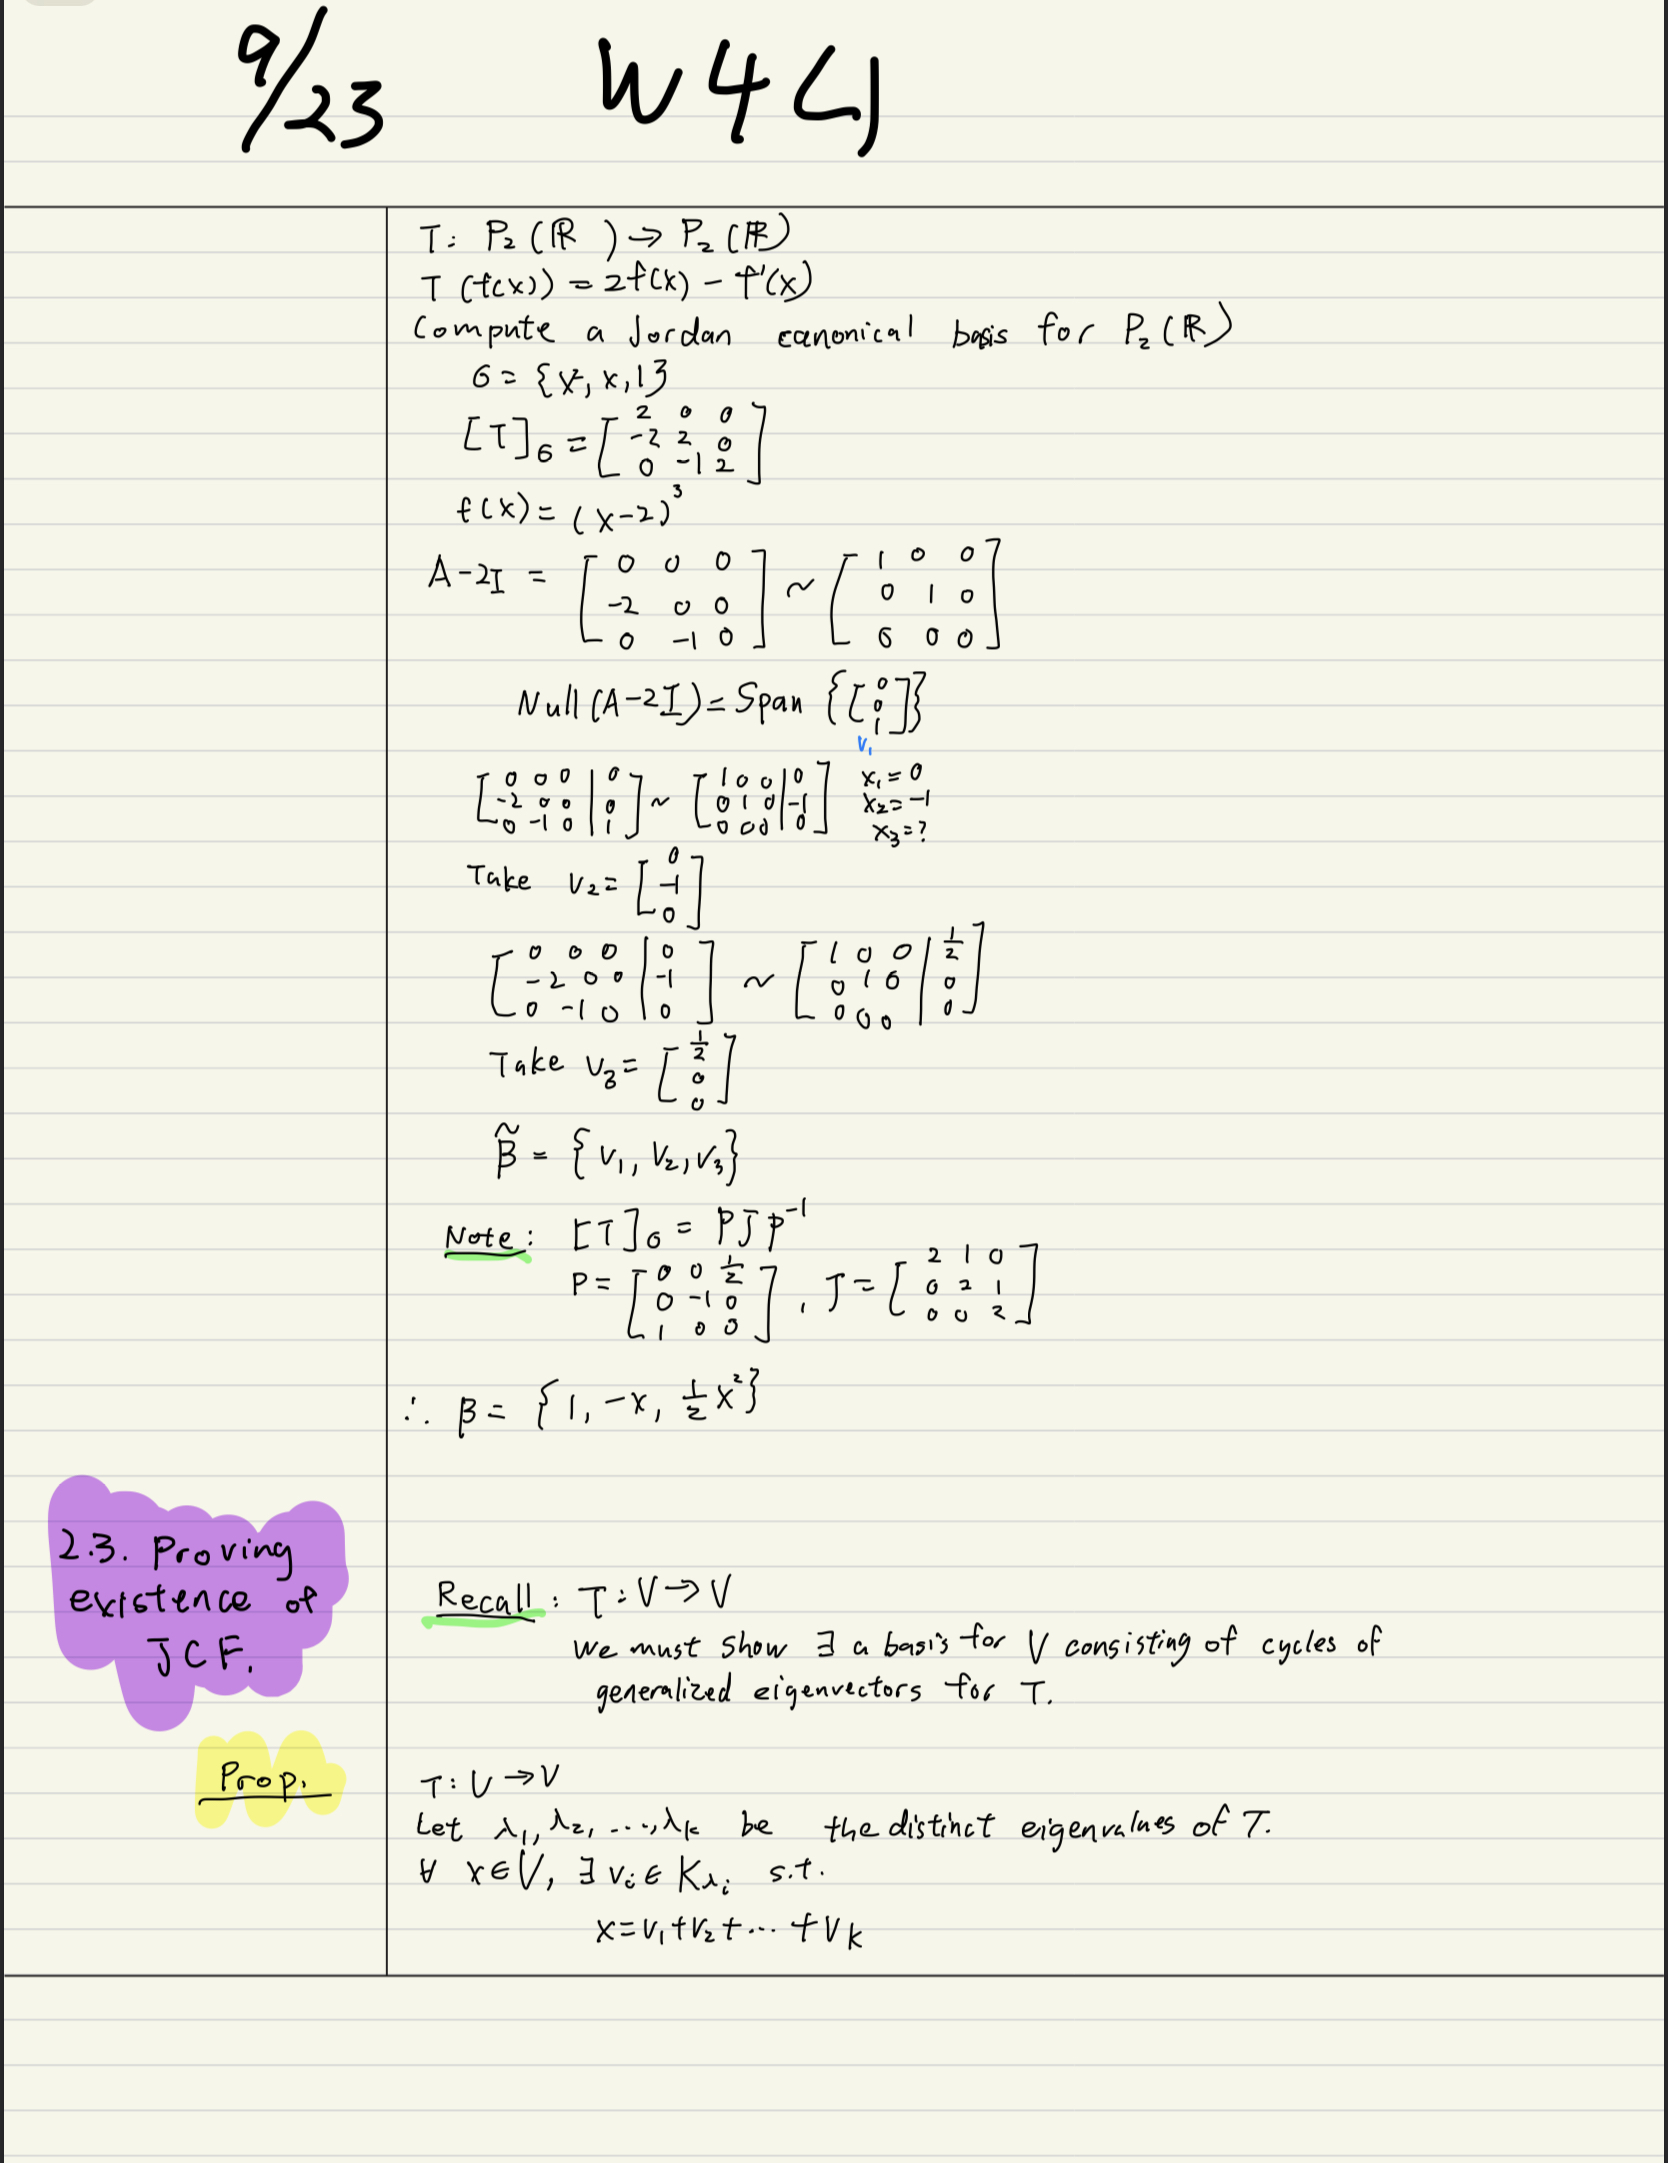 9/23 W4L1
T: P₂(ℝ) → P₂(ℝ)
T(f(x)) = 2f(x) - f'(x)
Compute a Jordan canonical basis for P₂(ℝ)
6 = {x², x, 1}
[T]₆ = [2 0 0; -2 2 0; 0 -1 2]
f(x) = (x-2)³
A-2I = [0 0 0; -2 0 0; 0 -1 0] ~ [1 0 0; 0 1 0; 0 0 0]
Null(A-2I) = Span {[0; 0; 1]}
v₁
[0 0 0 | 0; -2 0 0 | 0; 0 -1 0 | 1] ~ [1 0 0 | 0; 0 1 0 | -1; 0 0 0 | 0] x₁=0 x₂=-1 x₃=?
Take v₂ = [0; -1; 0]
[0 0 0 | 0; -2 0 0 | -1; 0 -1 0 | 0] ~ [1 0 0 | 1/2; 0 1 0 | 0; 0 0 0 | 0]
Take v₃ = [1/2; 0; 0]
β̃ = {v₁, v₂, v₃}
Note: [T]₆ = PJP⁻¹
P = [0 0 1/2; 0 -1 0; 1 0 0], J = [2 1 0; 0 2 1; 0 0 2]
∴ β = {1, -x, 1/2 x²}
2.3. Proving
existence of
JCF.
Recall: T: V → V
we must show ∃ a basis for V consisting of cycles of
generalized eigenvectors for T.
Prop.
T: V → V
Let λ₁, λ₂, ..., λk be the distinct eigenvalues of T.
∀ x ∈ V, ∃ vᵢ ∈ Kλᵢ s.t.
x = v₁ + v₂ + ... + vk